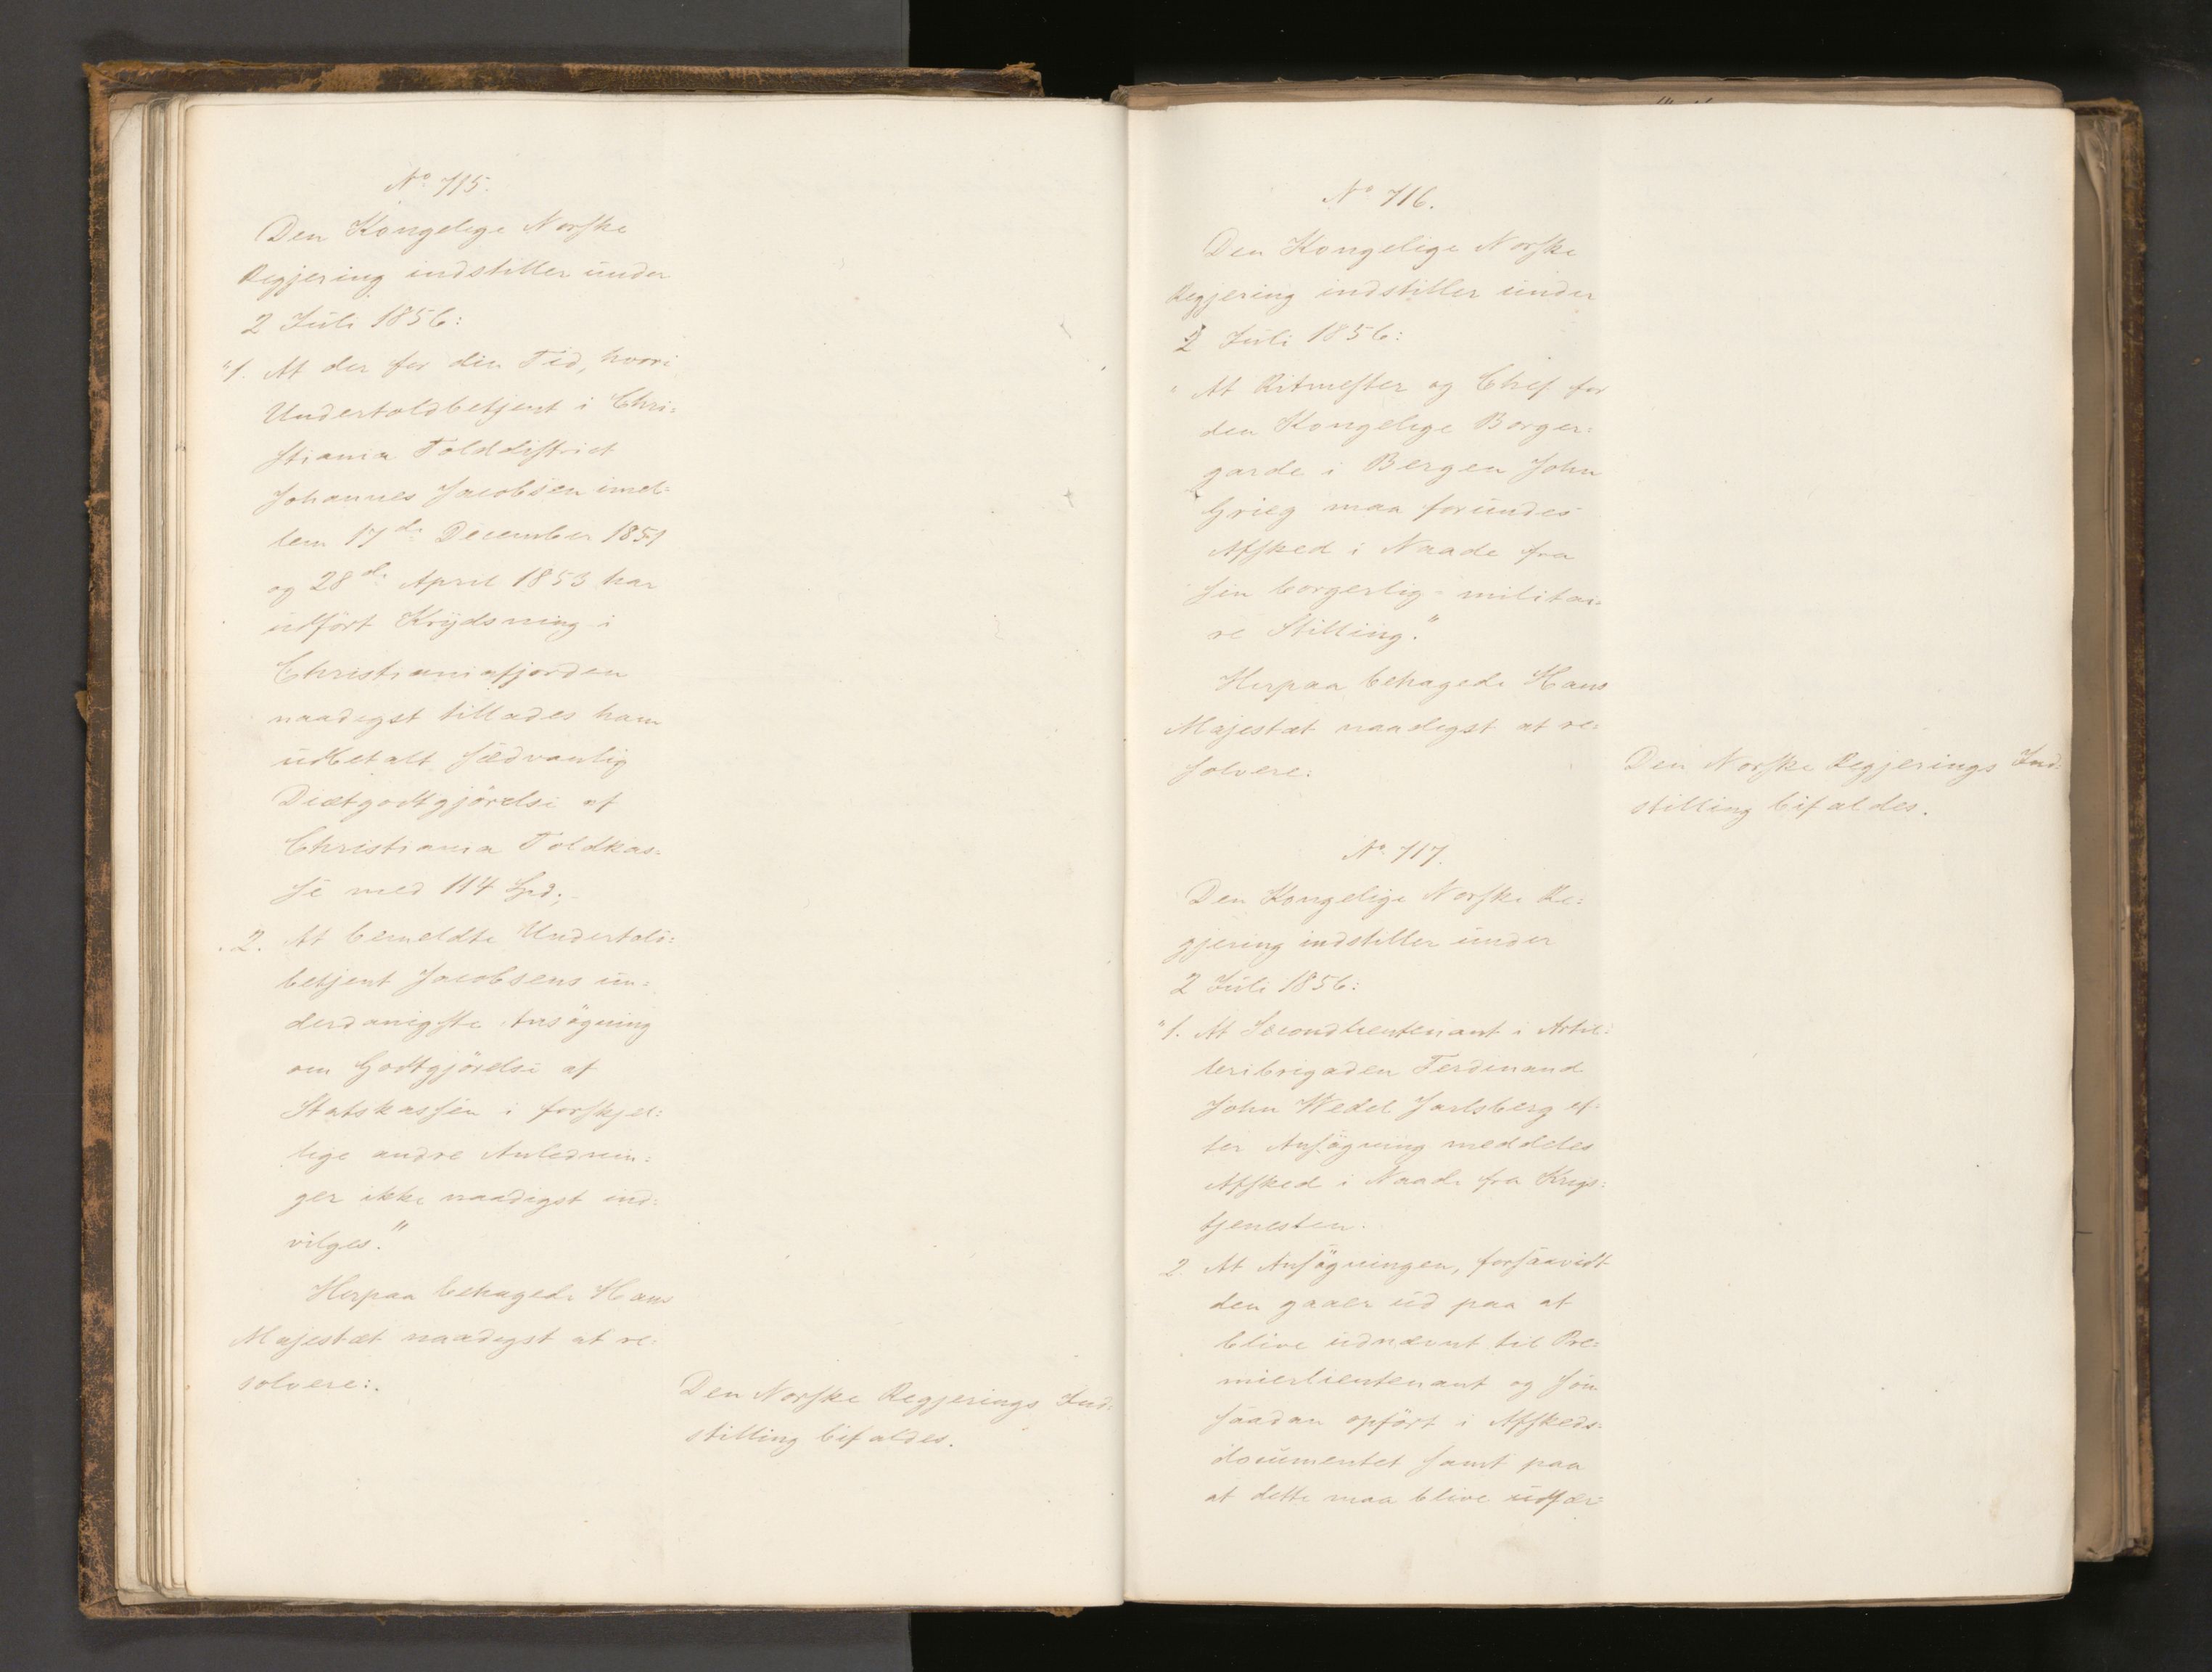 No 715.
Den Kongelige Norske
Regjering indstiller under
2 Juli 1856:
"1. At der for den Tid, hvori
Undertoldbetjent i Chri=
stiania Tolddistrict
Johannes Jacobsen imel=
lem 17de December 1851
og 28de April 1853 har
udført Krydsning i
Christianiafjorden
naadigst tillades ham
udbetalt sædvanlig
Diætgodtgjörelse af
Christiania Toldkas=
se med 114 Spd;
2. At bemeldte Undertold=
betjent Jacobsens un=
derdanigste Ansögning
om Godtgjörelse af
Statskassen i forskjel=
lige andre Anlednin=
ger ikke naadigst ind=
vilges."
Herpaa behagede Hans
Majestæt naadigst at re=
solvere:
Den Norske Regjerings Ind=
stilling bifaldes.
No 716.
Den Kongelige Norske
Regjering indstiller under
2 Juli 1856:
"At Ritmester og Chef for
den Kongelige Borger=
garde i Bergen John
Grieg maa forundes
Afsked i Naade fra
sin borgerlig-militai=
re Stilling."
Herpaa behagede Hans
Majestæt naadigst at re=
solvere:
Den Norske Regjerings Ind=
stilling bifaldes.
No 717.
Den Kongelige Norske Re=
gjering indstiller under
2 Juli 1856:
"1. At Secondlieutenant i Artil=
leribrigaden Ferdinand
John Wedel Jarlsberg ef=
ter Ansögning meddeles
Afsked i Naade fra Krigs=
tjenesten.
2 At Ansögningen, forsaavidt
den gaaer ud paa at
blive udnævnt til Pre=
mierlieutenant og som
saadan opfört i Afskeds=
documentet samt paa
at dette maa blive udfær=